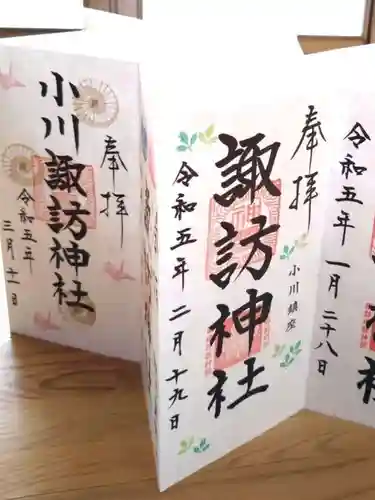 奉拝
小川諏訪神社
令和五年
三月十一日
奉拝
諏訪神社
小川鎮座
令和五年
二月十九日
令和五年
一月二十八日